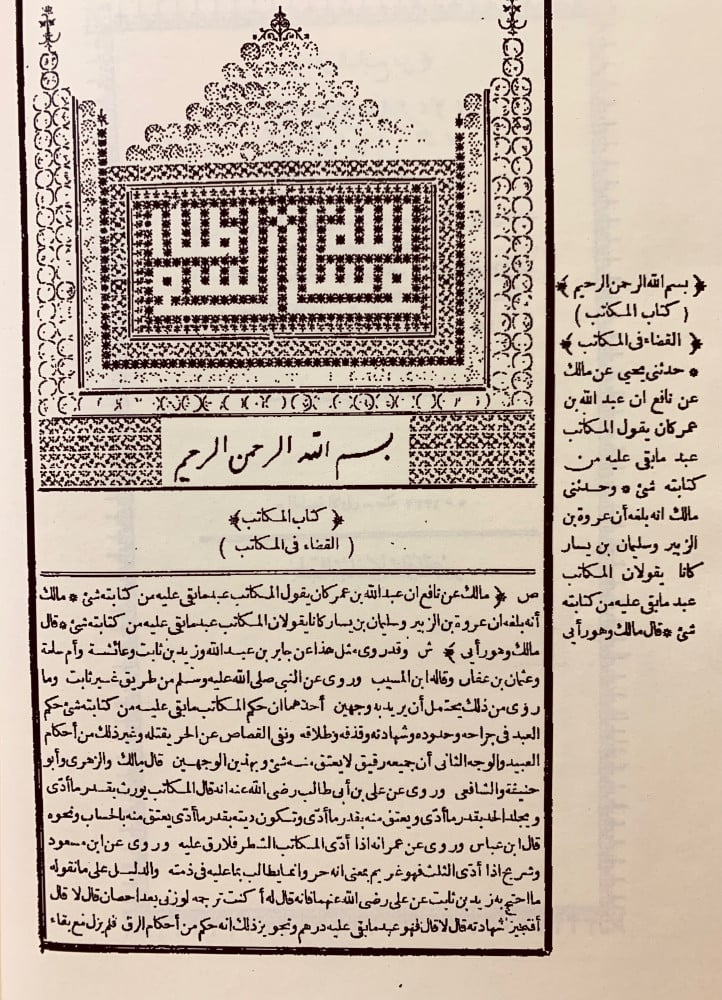 بسم الله الرحمن الرحيم
﴿ كتاب المكاتب ﴾
( القضاء فى المكاتب )
ص ﴿ مالك عن نافع ان عبد الله بن عمر كان يقول المكاتب عبد ما بقى عليه من كتابته شئ * مالك
أنه بلغه أن عروة بن الزبير وسليمان بن يسار كانا يقولان المكاتب عبد ما بقى عليه من كتابته شئ * قال
مالك وهو رأيى ﴾ ش وقد روى مثل هذا عن جابر بن عبد الله وزيد بن ثابت وعائشة وأم سلمة
وعثمان بن عفان وقاله ابن المسيب وروى عن النبى صلى الله عليه وسلم من طريق غير ثابت وما
روى من ذلك يحتمل أن يريد به وجهين أحدهما ان حكم المكاتب ما بقى عليه من كتابته شئ حكم
العبد فى جراحه وحدوده وشهادته وقذفه وطلاقه ونفى القصاص عن الحر بقتله وغير ذلك من أحكام
العبيد والوجه الثانى أن جميعه رقيق لا يعتق منه شئ وبهذين الوجهين قال مالك والزهرى وأبو
حنيفة والشافعى وروى عن على بن أبى طالب رضى الله عنه انه قال المكاتب يورث بقدر ما أدّى
ويجلد الحد بقدر ما أدّى ويعتق منه بقدر ما أدّى وتكون ديته بقدر ما أدّى يعتق منه بالحساب ونحوه
قال ابن عباس وروى عن عمر انه اذا أدّى المكاتب الشطر فلا رق عليه وروى عن ابن مسعود
وشريح اذا أدّى الثلث فهو غريم بمعنى انه حر وانما يطالب بما عليه فى ذمته والدليل على ما نقوله
ما احتج به زيد بن ثابت عن على رضى الله عنهما فانه قال له أكنت ترجمه لو زنى بعد احصان قال لا قال
أفتجيز شهادته قال لا قال فهو عبد ما بقى عليه درهم وتجويز ذلك انه حكم من أحكام الرق فلم يزل مع بقاء
﴿ بسم الله الرحمن الرحيم ﴾
( كتاب المكاتب )
﴿ القضاء فى المكاتب ﴾
* حدثنى يحيى عن مالك
عن نافع ان عبد الله بن
عمر كان يقول المكاتب
عبد ما بقى عليه من
كتابته شئ * وحدثنى
مالك انه بلغه أن عروة بن
الزبير وسليمان بن يسار
كانا يقولان المكاتب
عبد ما بقى عليه من كتابته
شئ * قال مالك وهو رأيى